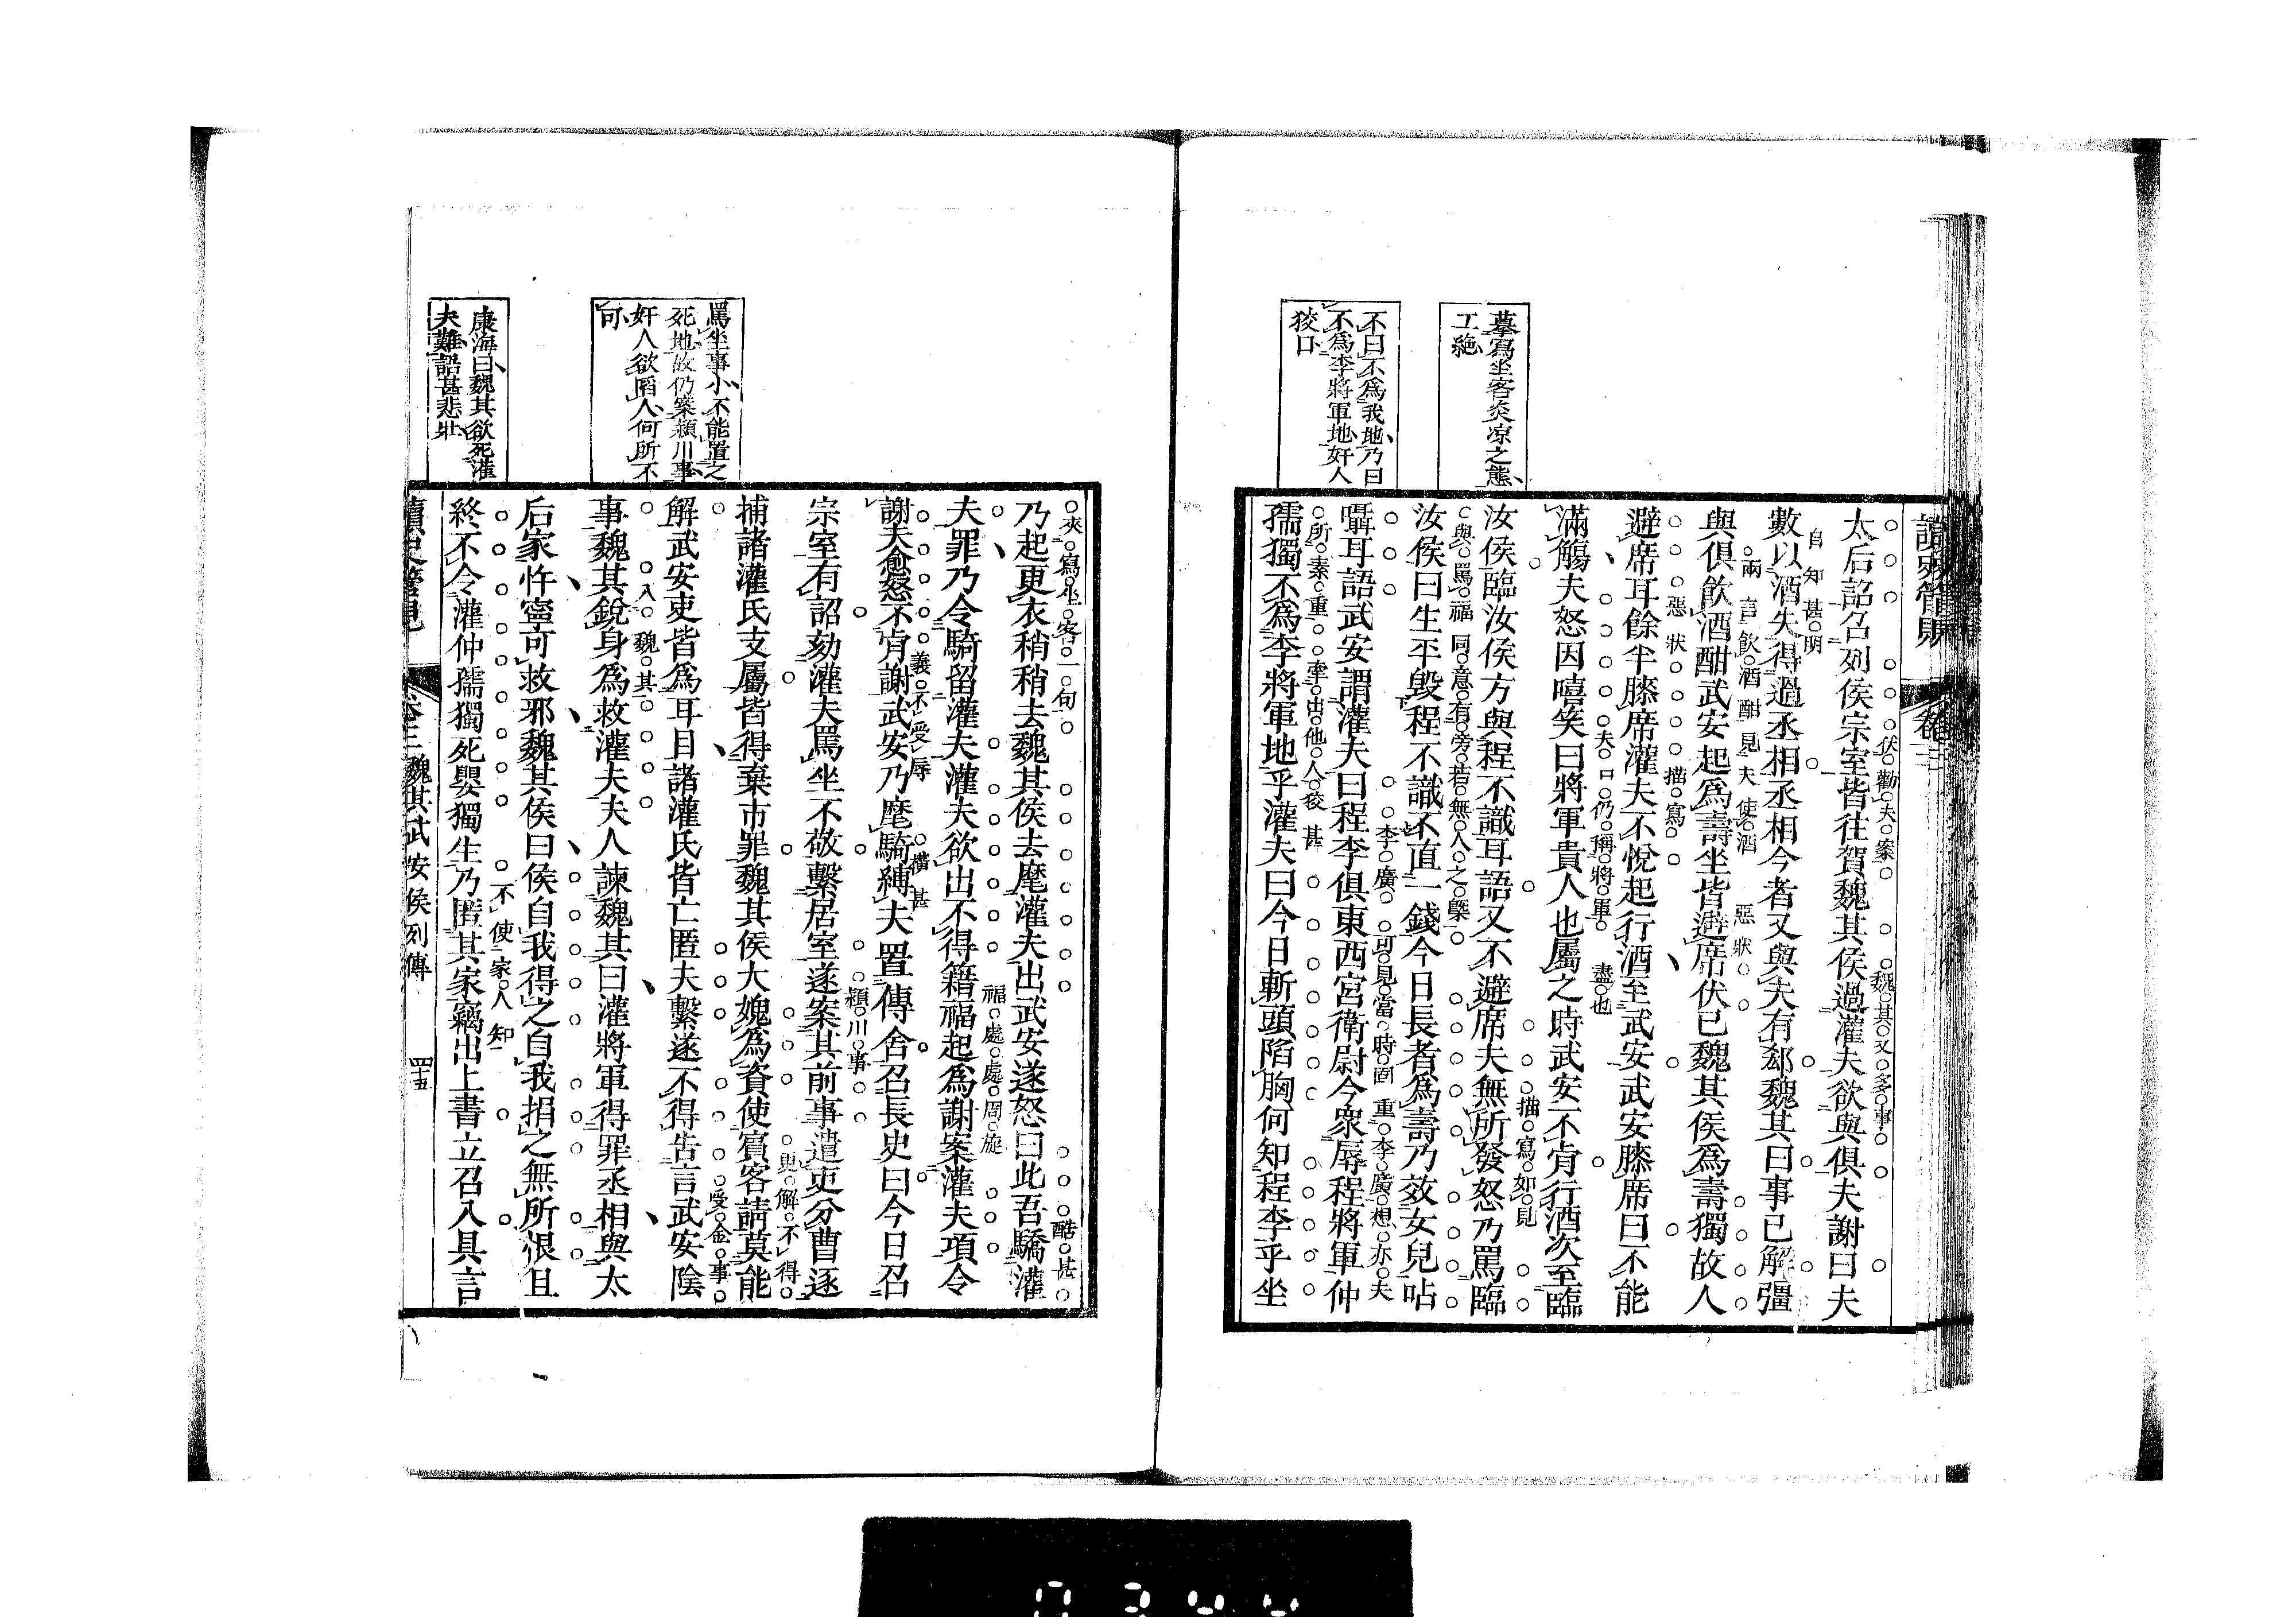 摹寫坐客炎凉之態
工絶
不曰不爲我地乃曰
不爲李將軍地奸人
狡口
太后詔召列侯宗室皆往賀魏其侯過灌夫欲與俱夫謝曰夫
伏勸夫案
魏其又多事
數以酒失得過丞相丞相今者又與夫有郄魏其曰事已解彊
自知甚明
與俱飮酒酣武安起爲壽坐皆避席伏已魏其侯爲壽獨故人
兩言飮酒酣見夫使酒
惡狀
避席耳餘半膝席灌夫不悅起行酒至武安武安膝席曰不能
惡狀
描寫
滿觴夫怒因嘻笑曰將軍貴人也屬之時武安不肯行酒次至臨
夫口仍稱將軍
盡也
汝侯臨汝侯方與程不識耳語又不避席夫無所發怒乃罵臨
描寫如見
汝侯曰生平毀程不識不直一錢今日長者爲壽乃效女兒呫
與罵福同意有旁若無人之槩
囁耳語武安謂灌夫曰程李俱東西宮衛尉今衆辱程將軍仲
李廣
可見當時固重李廣想亦夫
孺獨不爲李將軍地乎灌夫曰今日斬頭陷胸何知程李乎坐
所素重牽出他人狡甚
罵坐事小不能置之
死地故仍案潁川事
奸人欲陷人何所不
可
康海曰魏其欲死灌
夫難語甚悲壯
乃起更衣稍稍去魏其侯去麾灌夫出武安遂怒曰此吾驕灌
夾寫坐客一句
酷甚
夫罪乃令騎留灌夫灌夫欲出不得籍福起爲謝案灌夫項令
福處處周旋
謝夫愈怒不肯謝武安乃麾騎縛夫置傳舍召長史曰今日召
義不受辱
橫甚
宗室有詔劾灌夫罵坐不敬繫居室遂案其前事遣吏分曹逐
潁川事
捕諸灌氏支屬皆得棄市罪魏其侯大媿爲資使賓客請莫能
更解不得
解武安吏皆爲耳目諸灌氏皆亡匿夫繫遂不得告言武安陰
受金事
事魏其銳身爲救灌夫夫人諫魏其曰灌將軍得罪丞相與太
入魏其
后家忤寧可救邪魏其侯曰侯自我得之自我捐之無所恨且
終不令灌仲孺獨死嬰獨生乃匿其家竊出上書立召入具言
不使家人知
卷三 魏其武安侯列傳
四五